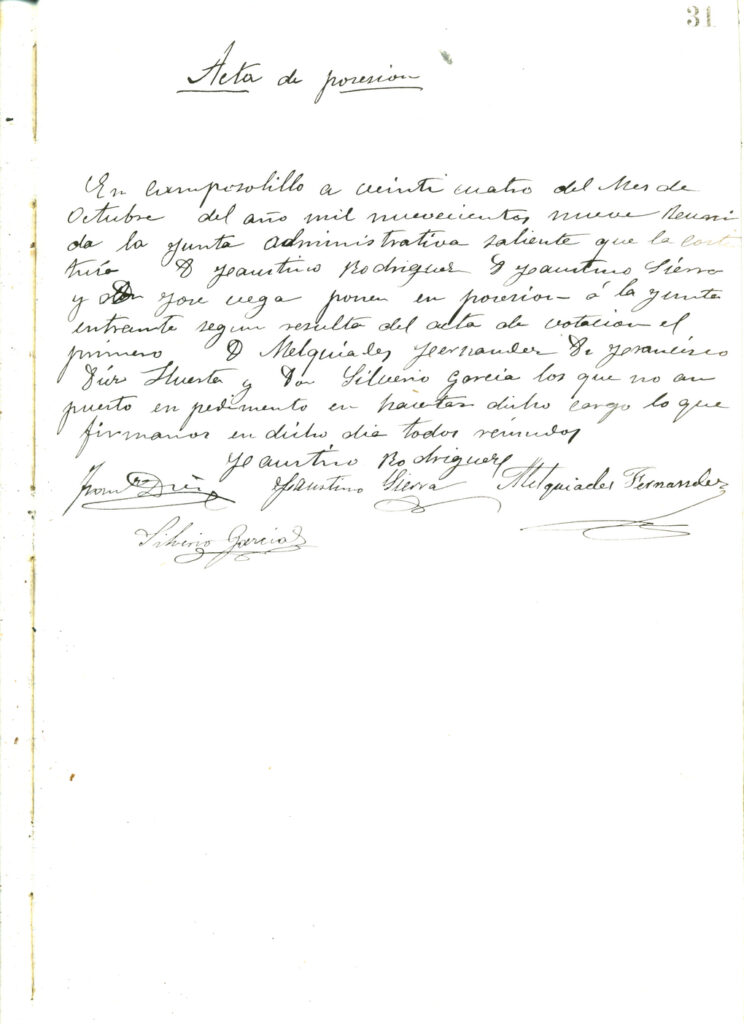 31
Acta de posesion
En Camposolillo a veinti cuatro del Mes de
Octubre del año mil nuevecientos nueve Reuni
da la Junta administrativa saliente que la
D Faustino Rodriguez D Faustino Sierra
y Don Jose vega ponen en posesion á la Junta
entrante segun resulta del acta de votacion el
primero D Melquiades Fernandez D Francisco
Diez Huerta y Don Silverio Garcia los que no an
puesto en pedimento en hacetar dicho cargo lo que
firmamos en dicho dia todos reunidos
Faustino Rodriguez
Faustino Sierra Melquiades Fernandez
Silverio Garcia